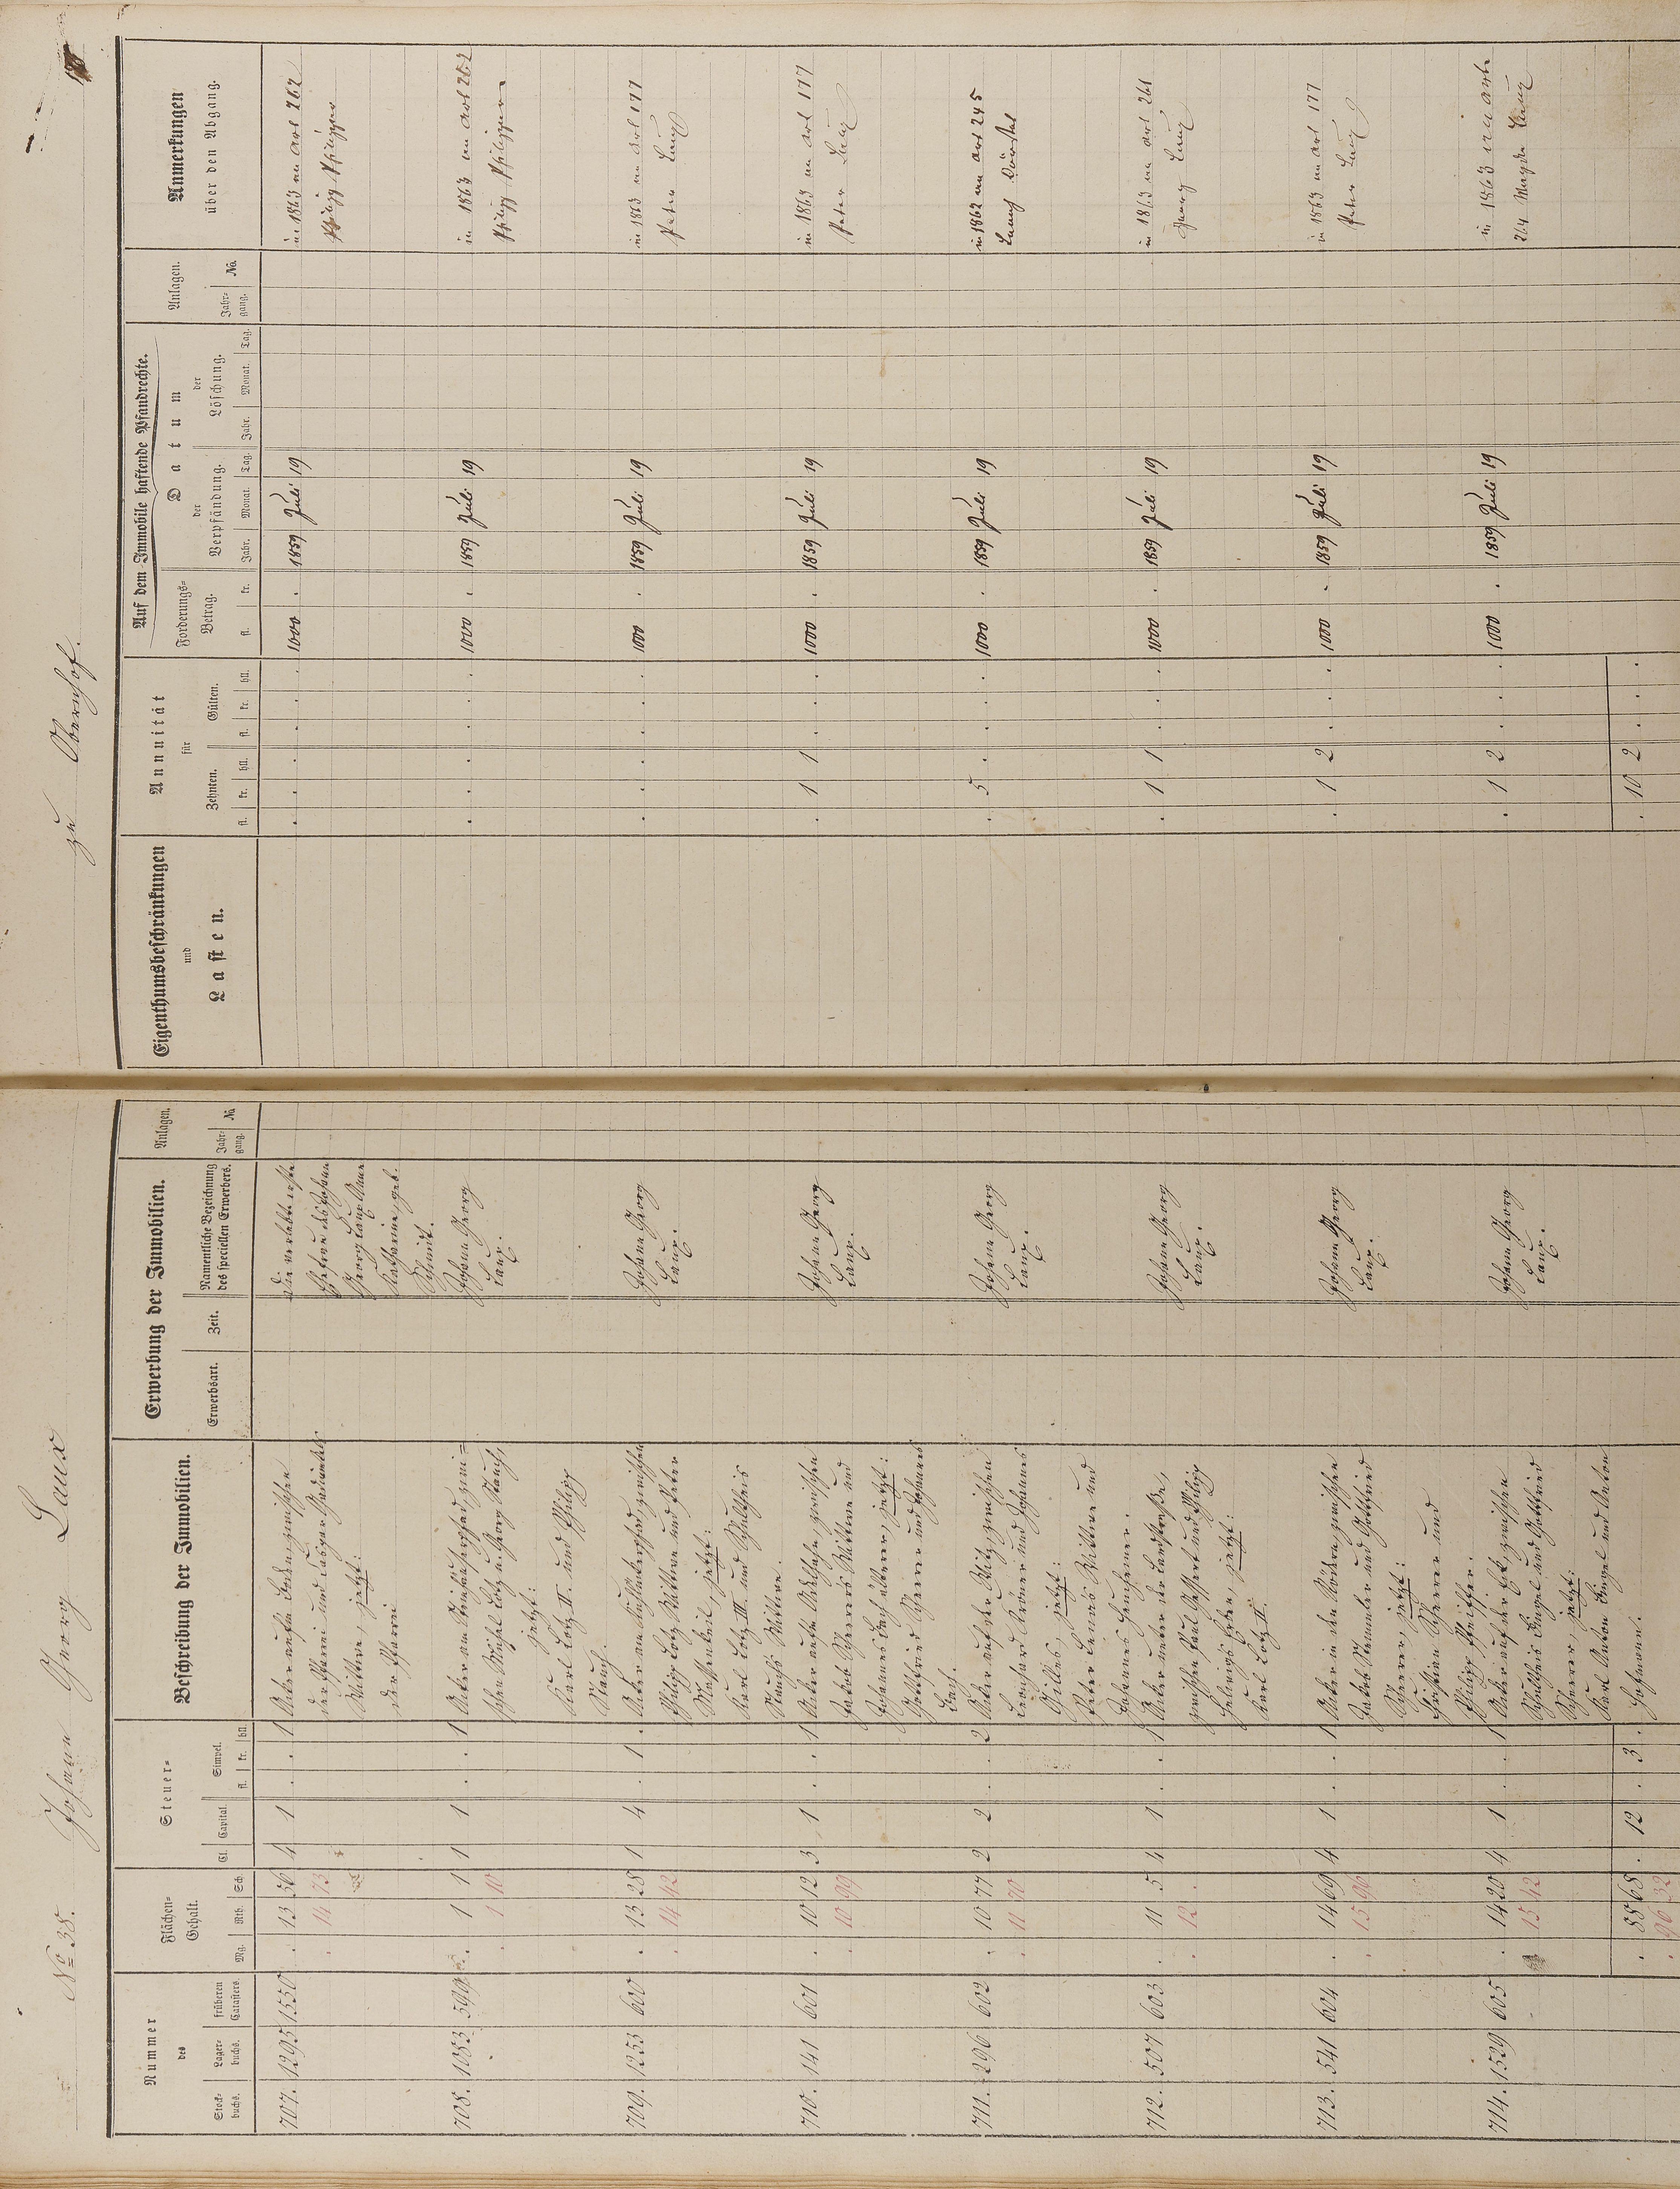 No 38. Johann Georg Laux
Nummer
des
Stock-
buchs.
Lager-
buchs.
früheren
Catasters.
Flächen-
Gehalt.
Mg.
Rth.
Sch.
Steuer-
Cl.
Capital.
Simpel.
fl.
kr.
hll.
Beschreibung der Immobilien.
Erwerbung der Immobilien.
Erwerbsart.
Zeit.
Namentliche Bezeichnung
des speciellen Erwerbers.
Anlagen.
Jahr-
gang.
No.
707. 1295 1550 . 13 56 4 1 . . 1
14 73
Acker aufm Boden, zwischen
der Pfarrei und
Wittwe, jetzt:
der Pfarrei
die verlebte erste
Ehefrau des Johann
Georg Laux Anna
Katharina, geb.
Schmidt.
708. 1053 599 . 1 1 1 1 . . 1
1 10
Acker am zwi-
schen Michel Lotz u. Georg Stauch,
jetzt:
Karl Lotz II. und Philipp
Stauch.
Johann Georg
Laux.
709. 1253 600 . 13 28 1 4 . 1 .
14 42
Acker am zwischen
Philipp Lotz Wittwe und Peter
jetzt:
Karl Lotz III. und Schultheis
Stauch's Wittwe.
Johann Georg
Laux.
710. 141 601 . 10 12 3 1 . . 1
10 99
Acker aufm zwischen
Jakob Scherer's Wittwe und
Johannes Bach älterer, jetzt:
Gottfried Scherer und Johannes
Bach.
Johann Georg
Laux.
711. 296 602 . 10 77 2 2 . . 2
11 70
Acker auf der zwischen
Leonhard und Johannes
Gilles, jetzt:
Peter Wittwe und
Johannes
Johann Georg
Laux.
712. 507 603 . 11 5 4 1 . . 1
12 .
Acker unter der Landstraße,
zwischen Paul und Philipp
Erben, jetzt:
Karl Lotz II.
Johann Georg
Laux.
713. 541 604 . 14 69 4 1 . . 1
15 96
Acker in den Rödern, zwischen
Jakob Stemmler und Gottfried
Scherer, jetzt:
Christian Scherer und
Philipp Pfeiffer.
Johann Georg
Laux.
714. 1529 605 . 14 20 4 1 . . 1
15 42
Acker auf der zwischen
Schultheis und Gottfried
Scherer, jetzt:
Karl Anton und Anton
Hofmann.
Johann Georg
Laux.
. 88 68 . 12 . 3 .
. 96 32
zu Obernhof.
Eigenthumsbeschränkungen
und
Lasten.
Annuität
für
Zehnten.
fl.
kr.
hll.
Gülten.
fl.
kr.
hll.
Auf dem Immobile haftende Pfandrechte.
Forderungs-
Betrag.
fl.
kr.
Datum
der
Verpfändung.
Jahr.
Monat.
Tag.
der
Löschung.
Jahr.
Monat.
Tag.
Anlagen.
Jahr-
gang.
No.
Anmerkungen
über den Abgang.
. . . . . . 1000 . 1859 Juli 19 in 1863 an Art 262
Philipp Philippar
. . . . . . 1000 . 1859 Juli 19 in 1863 an Art 262
Philipp Philippar
. . . . . . 1000 . 1859 Juli 19 in 1863 an Art 177
Peter Laux
. 1 1 . . . 1000 . 1859 Juli 19 in 1863 an Art 177
Peter Laux
. 5 . . . . 1000 . 1859 Juli 19 in 1862 an Art 245
. 1 1 . . . 1000 . 1859 Juli 19 in 1863 an Art 261
Georg Laux
. 1 2 . . . 1000 . 1859 Juli 19 in 1863 an Art 177
Peter Laux
. 1 2 . . . 1000 . 1859 Juli 19 in 1863 an Art
264 Laux
. 10 2 . . .